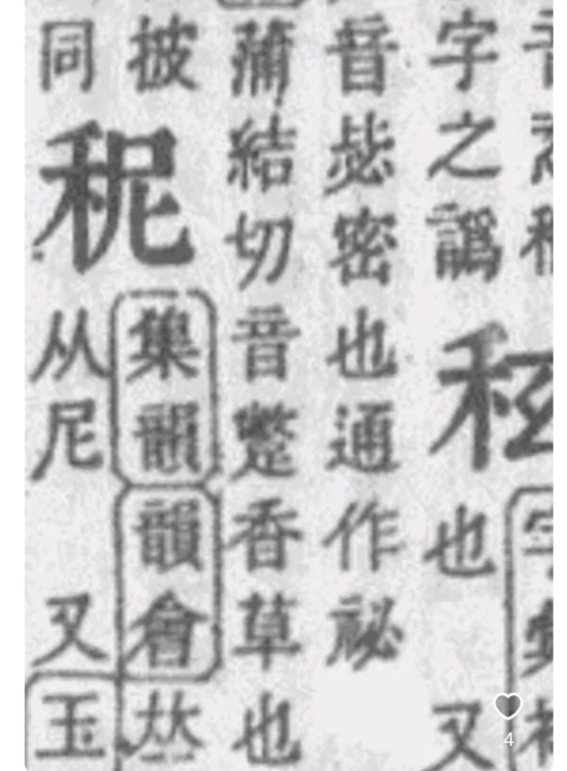 字之譌 也 又
音毖密也通作祕
蒲結切音蹩香草也
披 秜 集韻韻會𠀤
同 从尼 又玉